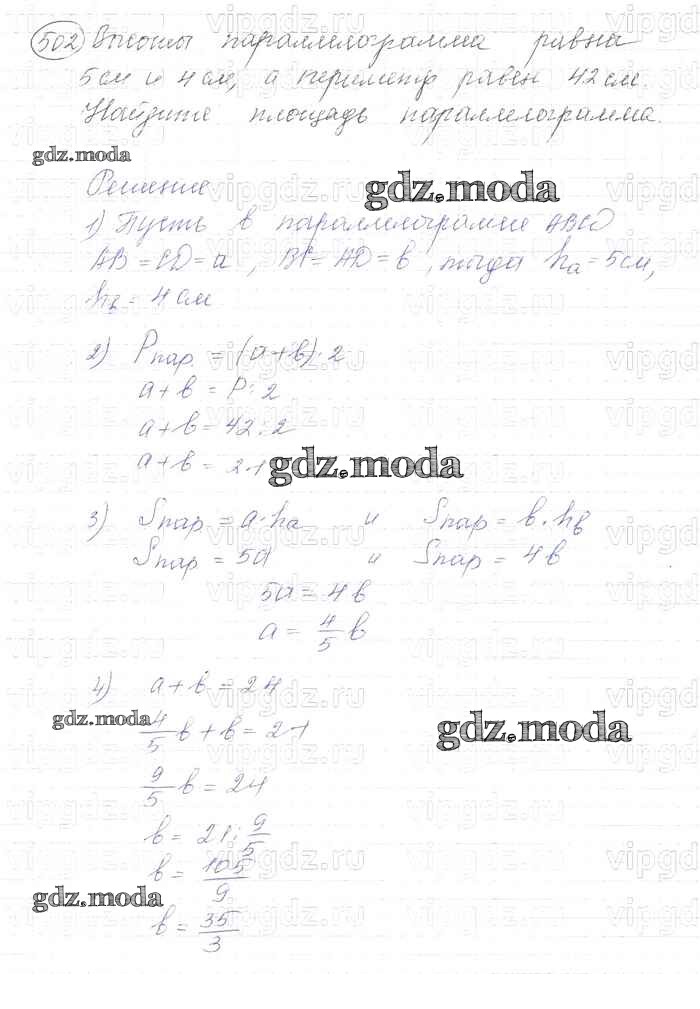 502 Высоты параллелограмма равна
5см и 4см, а периметр равен 42см.
Найдите площадь параллелограмма.
gdz.moda
Решение
gdz.moda
1) Пусть в параллелограмме ABCD
AB = CD = a, BC = AD = b, тогда hₐ = 5см,
h_b = 4см
2) Pпар = (a+b)·2
a+b = P:2
a+b = 42:2
a+b = 21
gdz.moda
3) Sпар = a·hₐ и Sпар = b·h_b
Sпар = 5a и Sпар = 4b
5a = 4b
a = 4/5 b
4) a+b = 21
gdz.moda
4/5 b + b = 21
gdz.moda
9/5 b = 21
b = 21 : 9/5
b = 105/9
gdz.moda
b = 35/3
vipgdz.ru